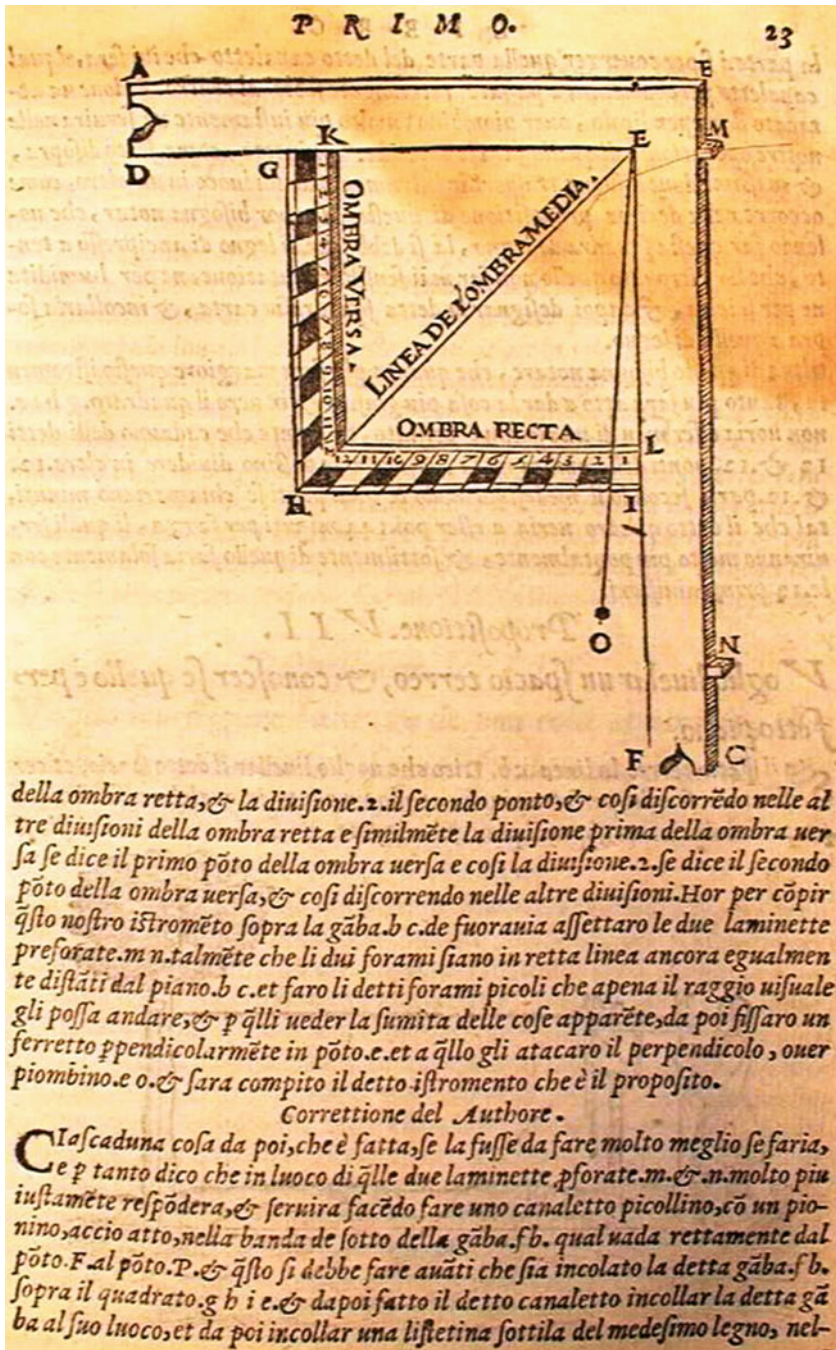 PRIMO.
23
A
E
M
D
G
K
E
OMBRA VERSA.
LINEA DE L'OMBRA MEDIA.
OMBRA RECTA
L
12 11 10 9 8 7 6 5 4 3 2 1
H
I
O
N
F
C
della ombra retta,& la diuisione.2.il secondo ponto,& cosi discorrẽdo nelle al
tre diuisioni della ombra retta e similmẽte la diuisione prima della ombra uer
sa se dice il primo põto della ombra uersa e cosi la diuisione.2.se dice il secondo
põto della ombra uersa,& cosi discorrendo nelle altre diuisioni.Hor per cõpir
q̃sto nostro istromẽto sopra la gãba.b c.de fuorauia assettaro le due laminette
preforate.m n.talmẽte che li dui forami siano in retta linea ancora egualmen
te distãti dal piano.b c.et faro li detti forami picoli che apena il raggio uisuale
gli possa andare,& p q̃lli ueder la sumita delle cose apparẽte,da poi fissaro un
ferretto ꝑpendicolarmẽte in põto.e.et a q̃llo gli atacaro il perpendicolo, ouer
piombino.e o.& sara compito il detto istromento che è il proposito.
Correttione del Authore.
CIascaduna cosa da poi,che è fatta,se la fusse da fare molto meglio se faria,
e ꝑ tanto dico che in luoco di q̃lle due laminette ꝑforate.m.&.n.molto piu
iustamẽte respõdera,& seruira facẽdo fare uno canaletto picollino,cõ un pio-
nino,accio atto,nella banda de sotto della gãba.f b. qual uada rettamente dal
põto.F.al põto.P.& q̃sto si debbe fare auãti che sia incolato la detta gãba.f b.
sopra il quadrato.g h i e.& dapoi fatto il detto canaletto incollar la detta gã
ba al suo luoco,et da poi incollar una listetina sottila del medesimo legno, nel-